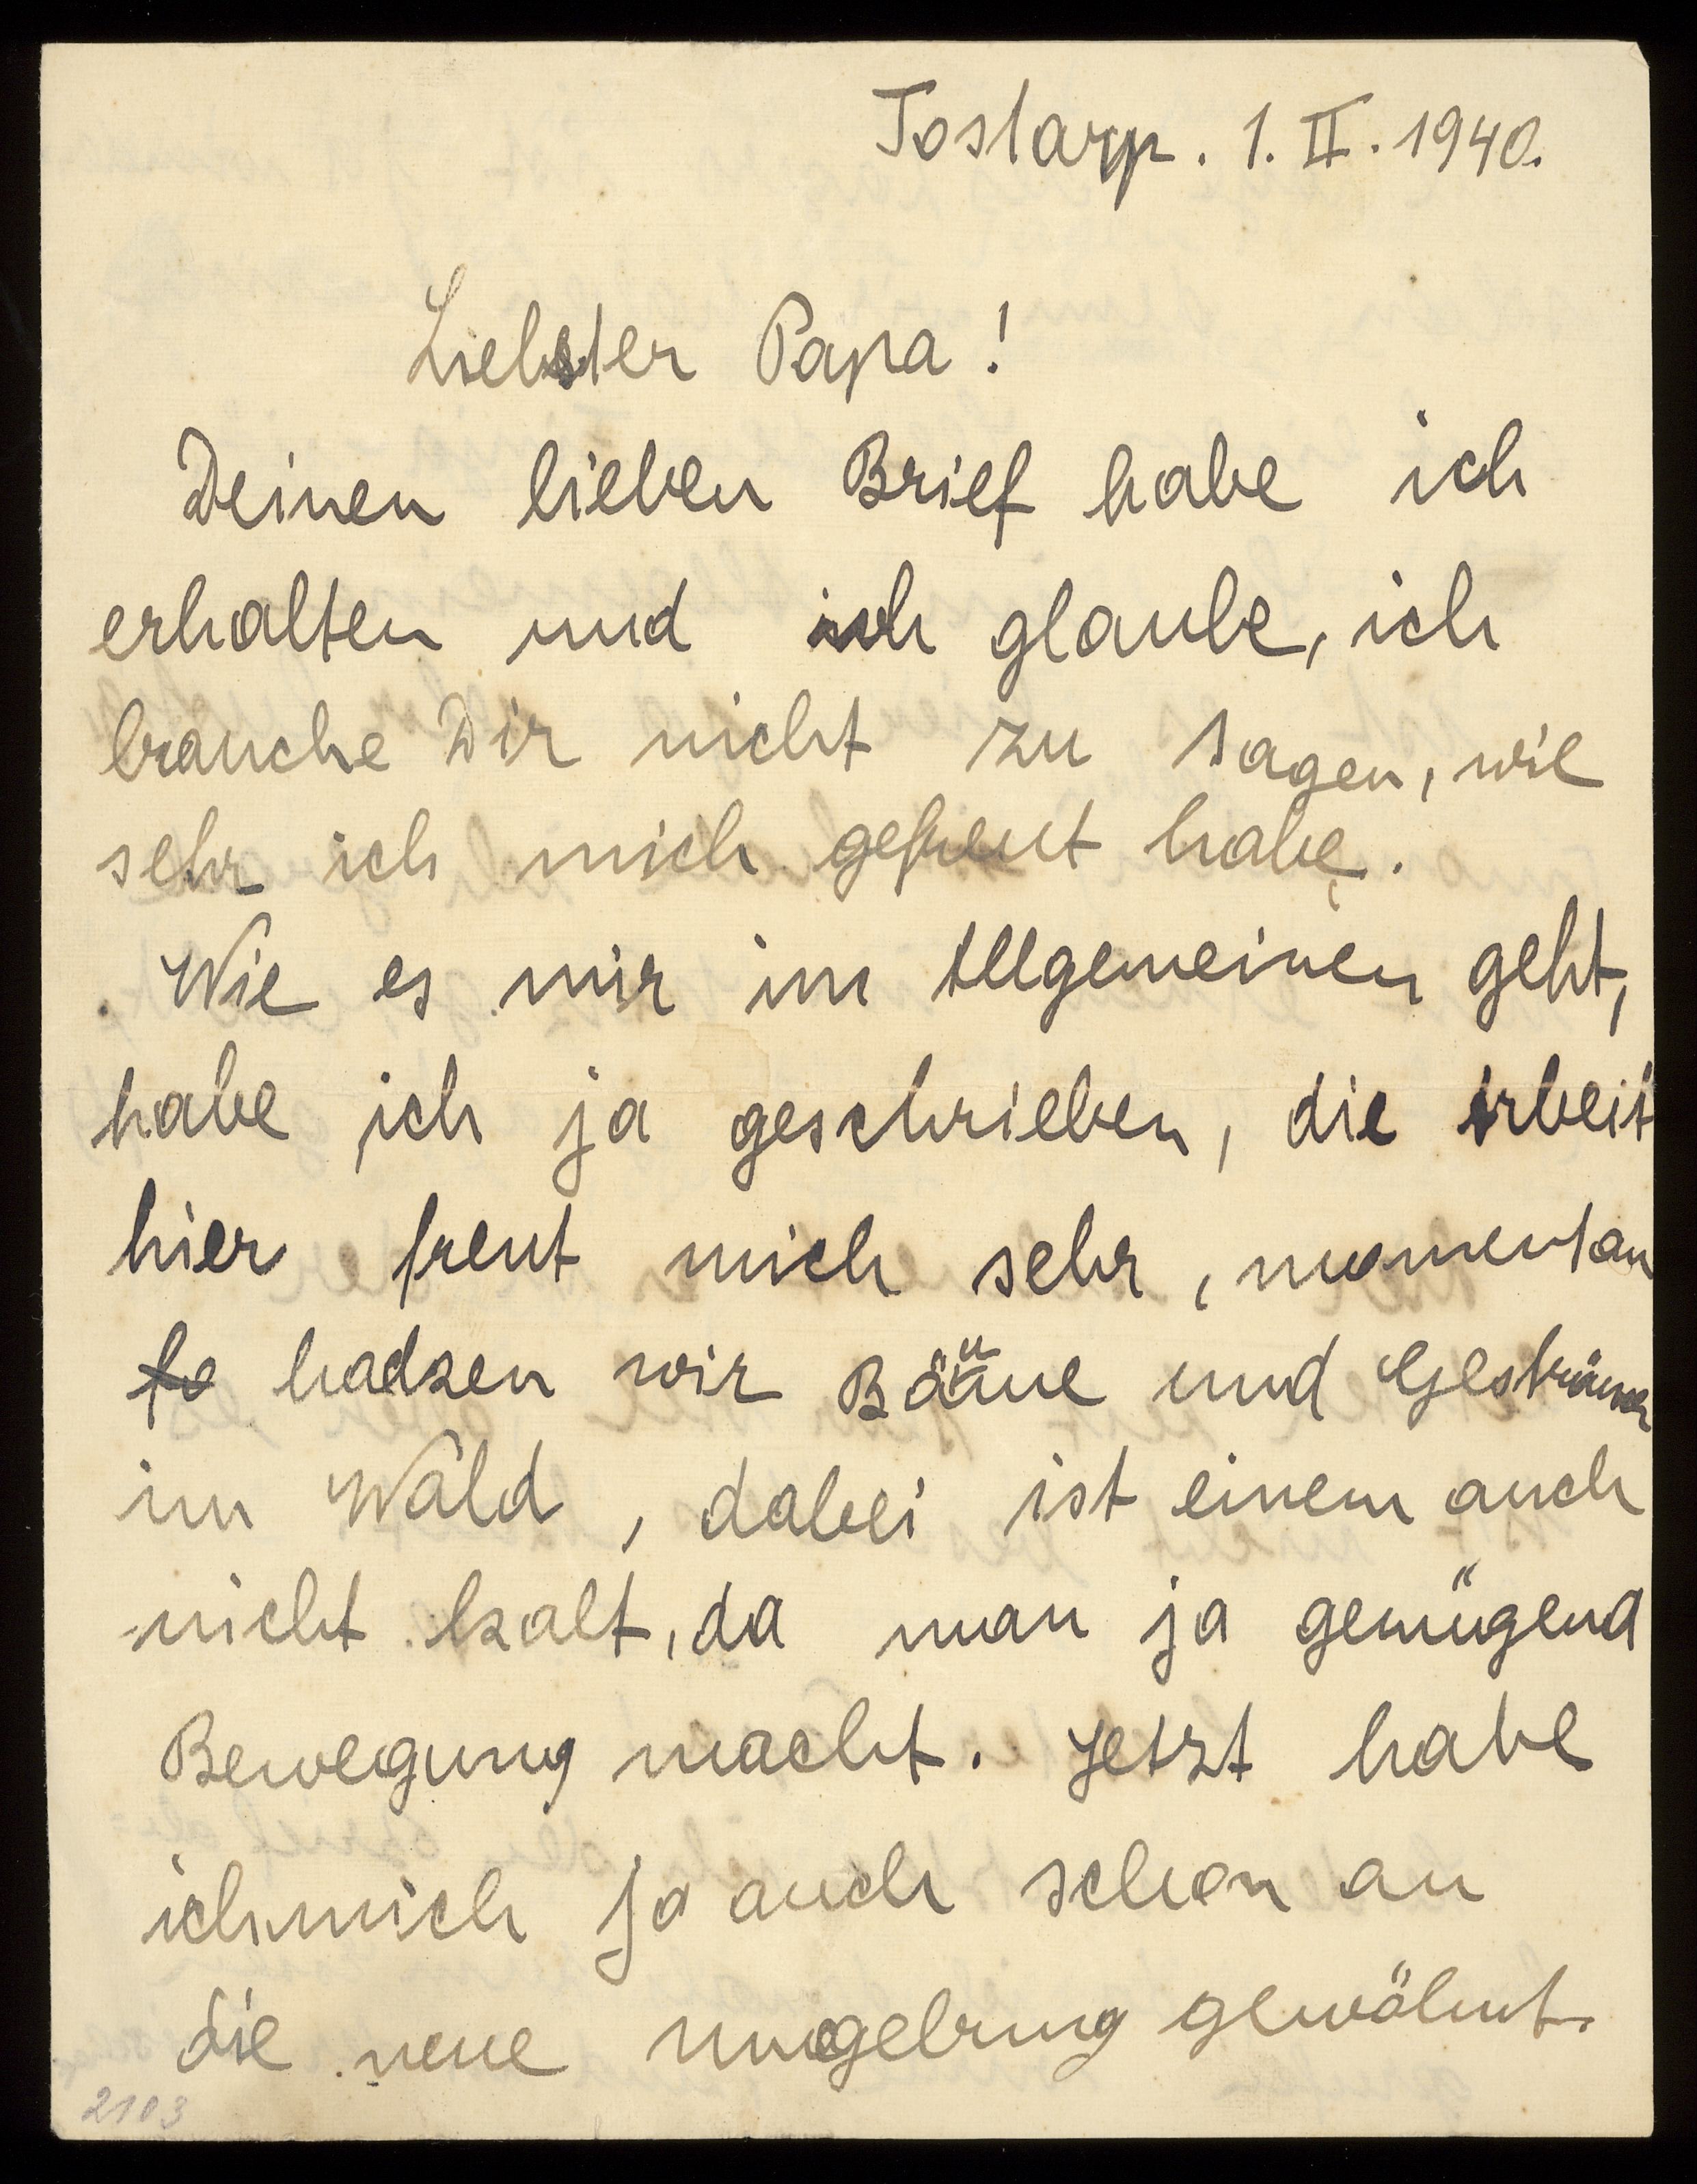 Tostarp. 1. II. 1940.
Liebster Papa!
Deinen lieben Brief habe ich
erhalten und ich glaube, ich
brauche Dir nicht zu sagen, wie
sehr ich mich gefreut habe.
Wie es mir im Allgemeinen geht,
habe ich ja geschrieben, die Arbeit
hier freut mich sehr, momentan
hacken wir Bäume und Gesträuch
im Wald, dabei ist einem auch
nicht kalt, da man ja genügend
Bewegung macht. Jetzt habe
ich mich ja auch schon an
die neue Umgebung gewöhnt.
2103